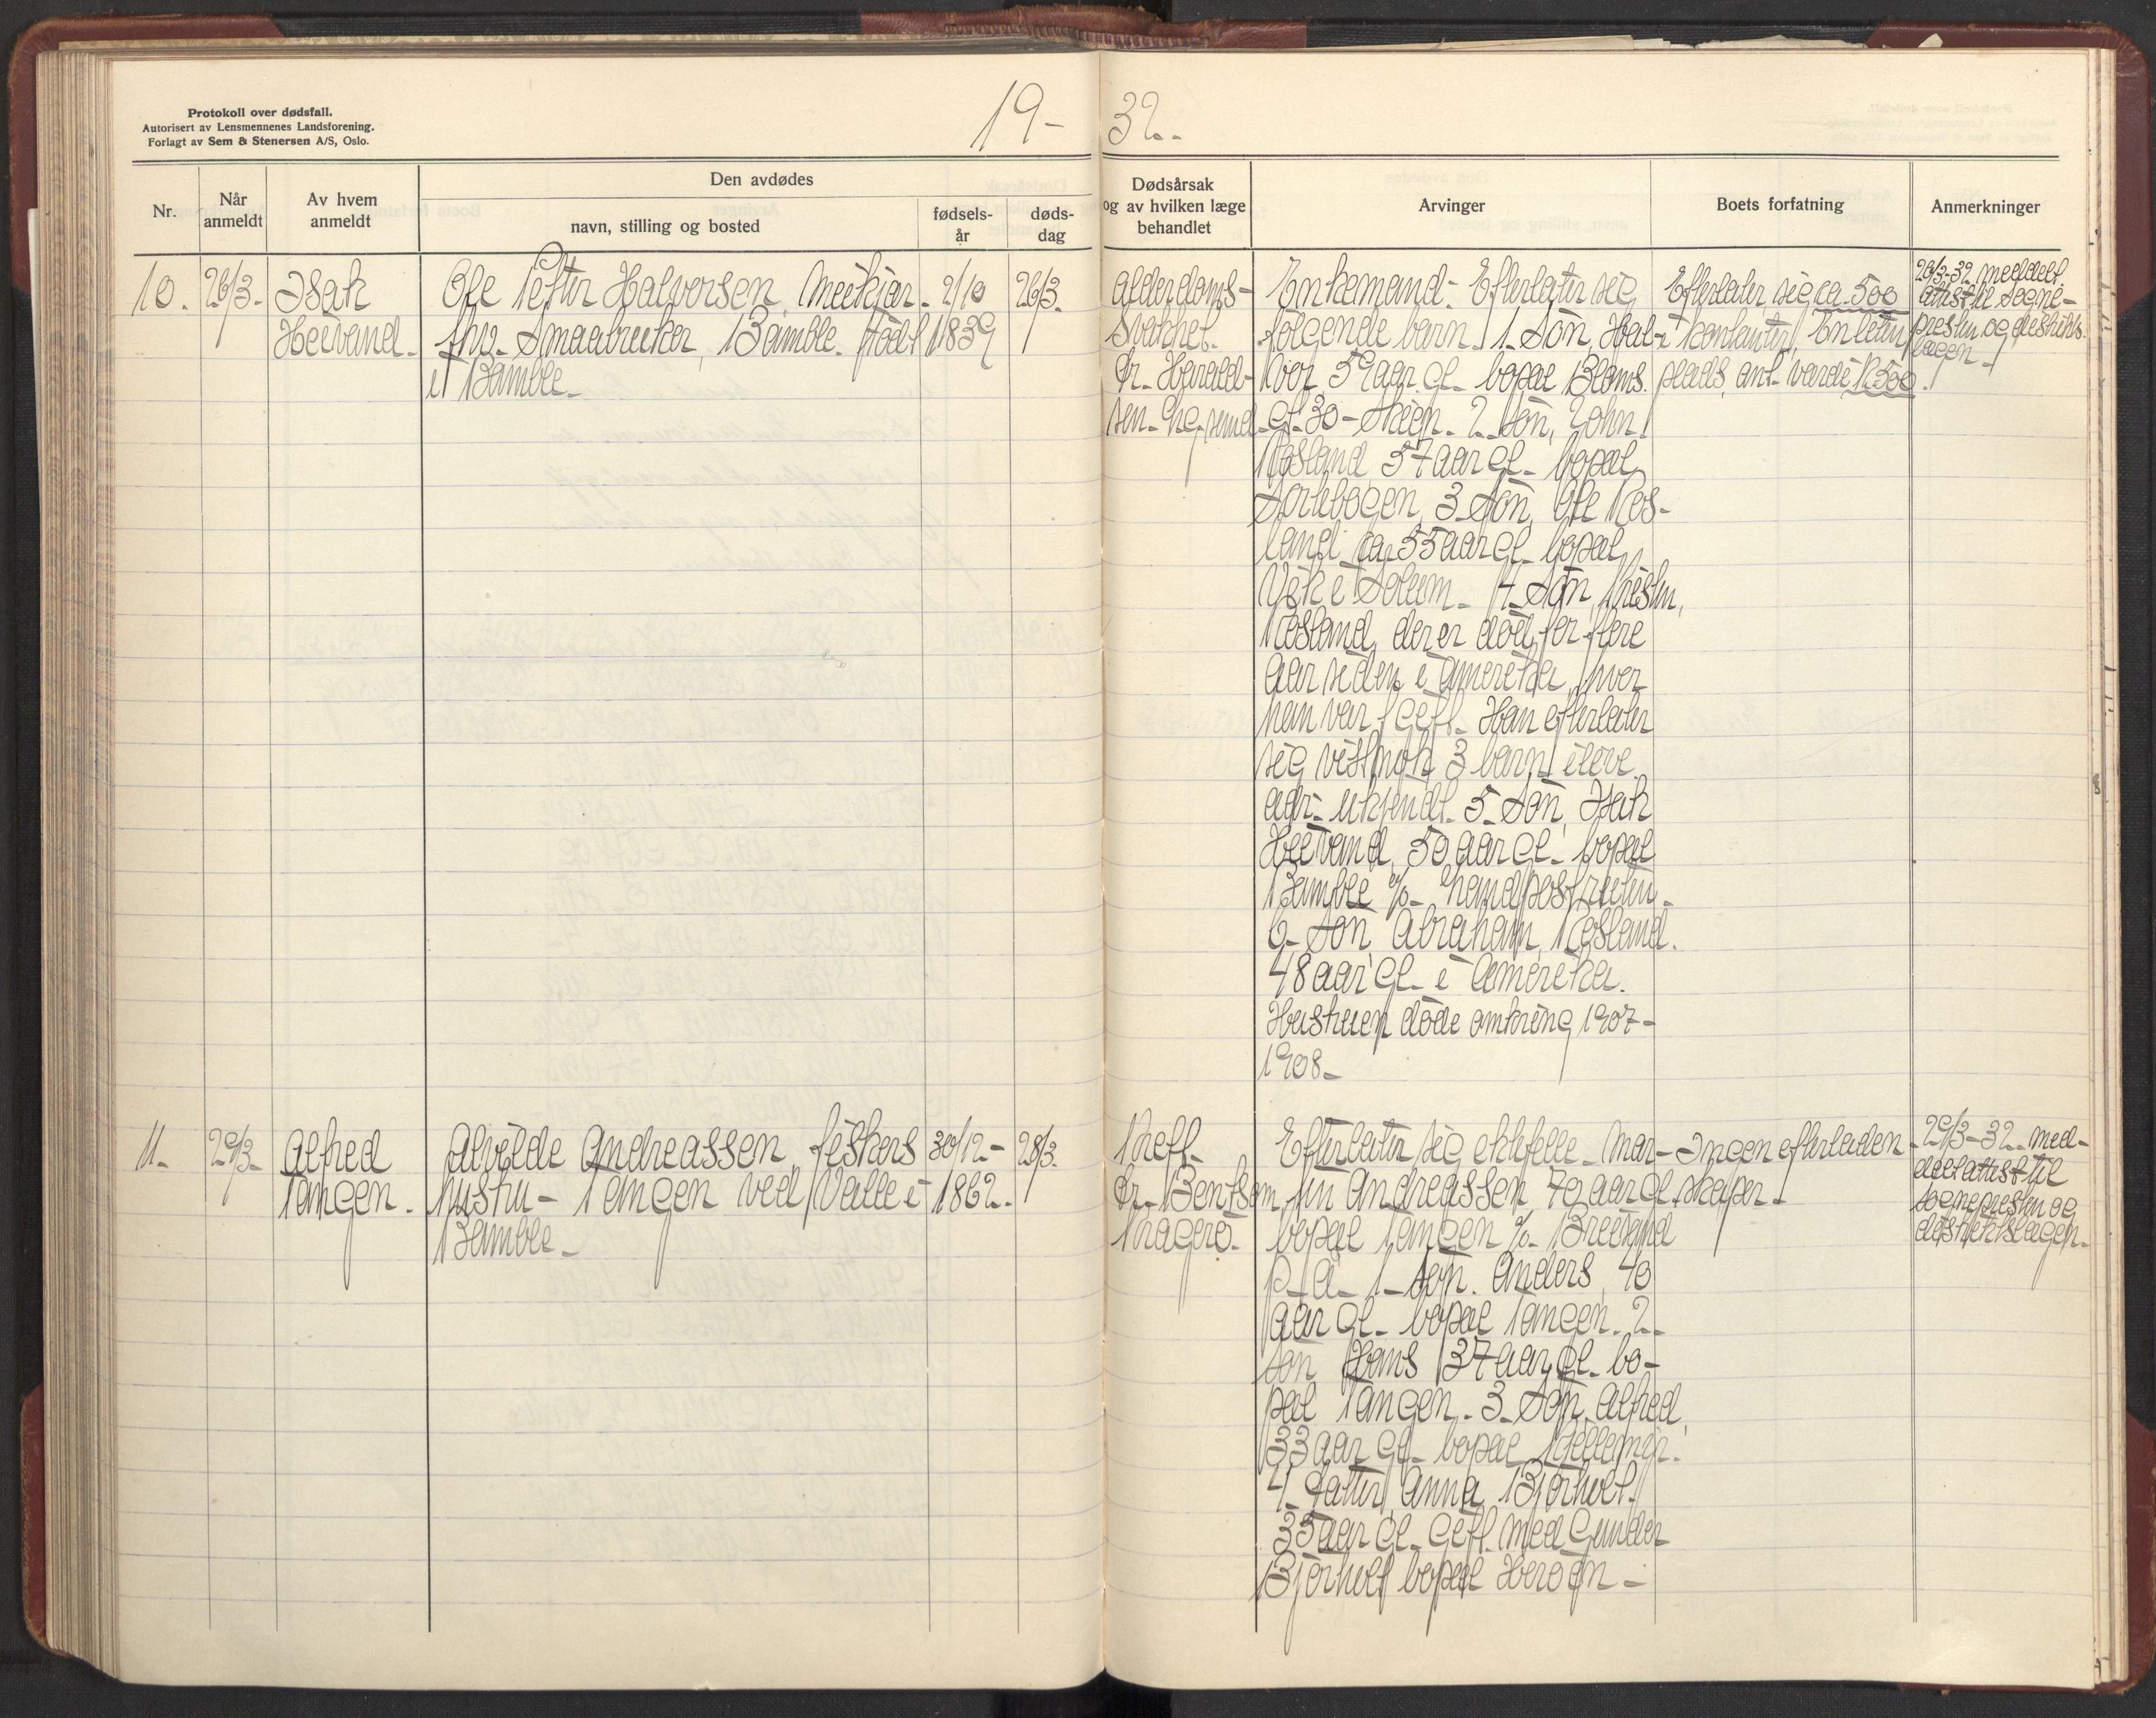 19- 32.-
Protokoll over dødsfall.
Autorisert av Lensmennenes Landsforening.
Forlagt av Sem & Stenersen A/S, Oslo.
Nr.
Når
anmeldt
Av hvem
anmeldt
Den avdødes
navn, stilling og bosted
fødsels-
år
døds-
dag
Dødsårsak
og av hvilken læge
behandlet
Arvinger
Boets forfatning
Anmerkninger
10.
26/3-
Isak
Heivand.
Ole Petter Halvorsen,
fhv. Smaabruker, Bamble. Födt
i Bamble.
2/10
1839
26/3.
Alderdoms-
svakhet.
Dr. Harald-
sen.
Enkemand. Efterlater sig
følgende barn. 1. Sön, Hal-
vor 59 aar gl. bopæl Bloms.
gt. 30 - Skien. 2. Sön, John
Rosland 57 aar gl. bopæl
3. Sön, Ole Ros-
land ca. 55 aar gl. bopæl
Vik i Solum. 4. Sön,
Rosland, der er död for flere
aar siden i Amerika, hvor
han var gift. Han efterlater
sig vistnok 3 barn i live
adr. ukjendt. 5. Sön, Isak
Heivand, 50 aar gl. bopæl
Bamble %
6. Sön Abraham Rosland.
48 aar gl. i Amerika.
Hustruen döde omkring 1907-
1908.
Efterlater sig ca. 500
i kontanter. En liten
plads, ant. værdi K. 500.
26/3-32. meddelt
attest til sogne-
presten og distrikts-
lægen.
11.
29/3-
Alfred
Tangen.
Alvilde Andreassen, fiskers
hustru - Tangen ved Valle i
Bamble.
30/12-
1862.
28/3.
Kreft.
Dr. Bentsen,
Kragerö.
Efterlater sig ektefelle. Mar-
tin Andreassen, 70 aar gl.
bopæl Tangen %
p. å. 1. sön. Anders, 40
aar gl. bopæl Tangen. 2.
sön Hans 37 aar gl. bo-
pæl Tangen. 3. Sön, Alfred,
33 aar gl. bopæl
4. datter Anna Björholt.
35 aar gl. gift med Gunder
Björholt bopæl Heröen -
Ingen efterladen-
skaper.
29/3-32. med-
delt attest til
sognepresten og
distriktslægen.